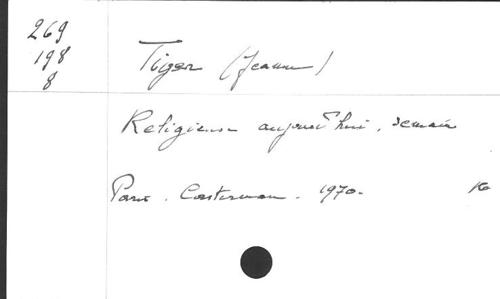 269
198
8
Tiger (Jeanne)
Religieuse aujourd'hui, demain
Paris. Casterman. 1970.